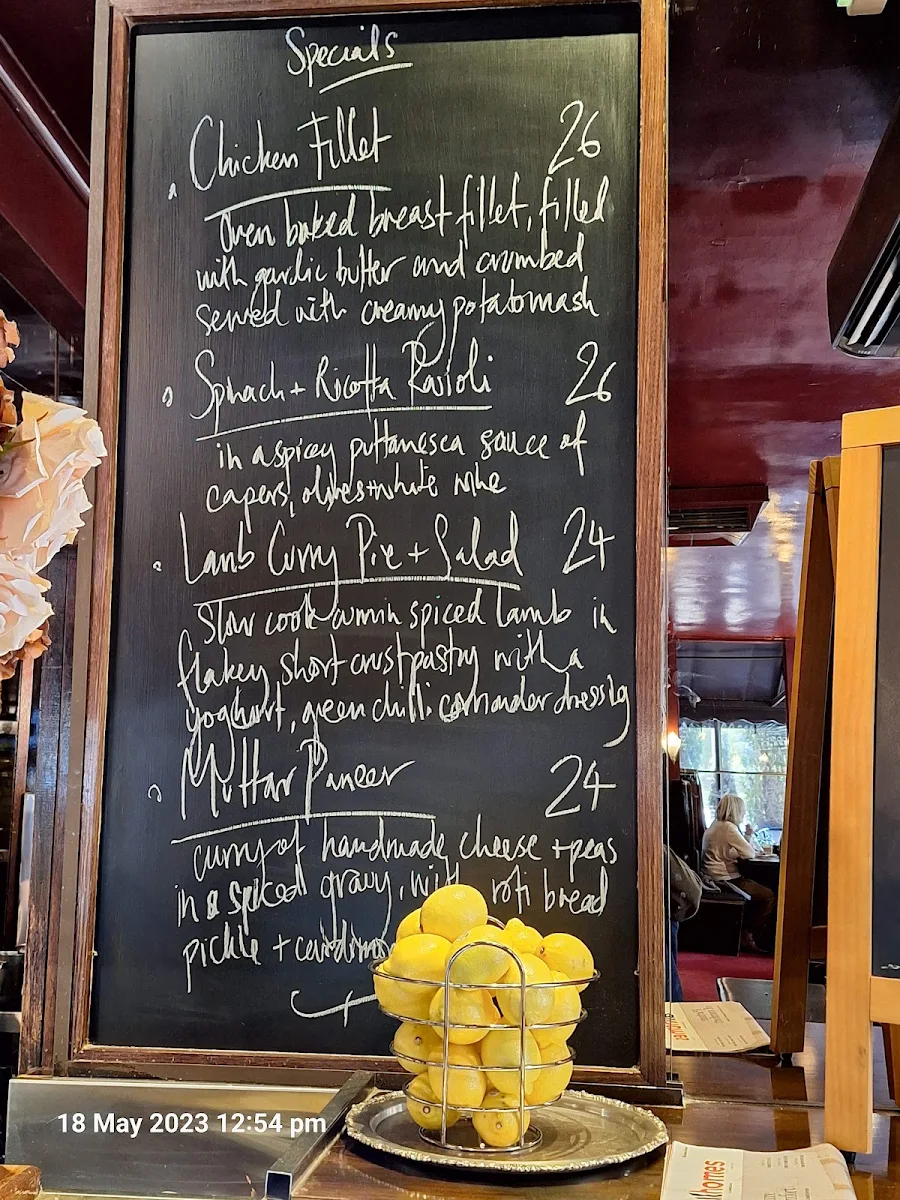 Specials
Chicken Fillet 26
Oven baked breast fillet, filled
with garlic butter and crumbed
served with creamy potato mash
Spinach + Ricotta Ravioli 26
in a spicy puttanesca sauce of
capers, olives + white wine
Lamb Curry Pie + Salad 24
Slow cook cumin spiced lamb in
flakey short crust pastry with a
yoghurt, green chilli coriander dressing
Muttar Paneer 24
curry of handmade cheese + peas
in a spiced gravy, with roti bread
pickle +
18 May 2023 12:54 pm
Homes